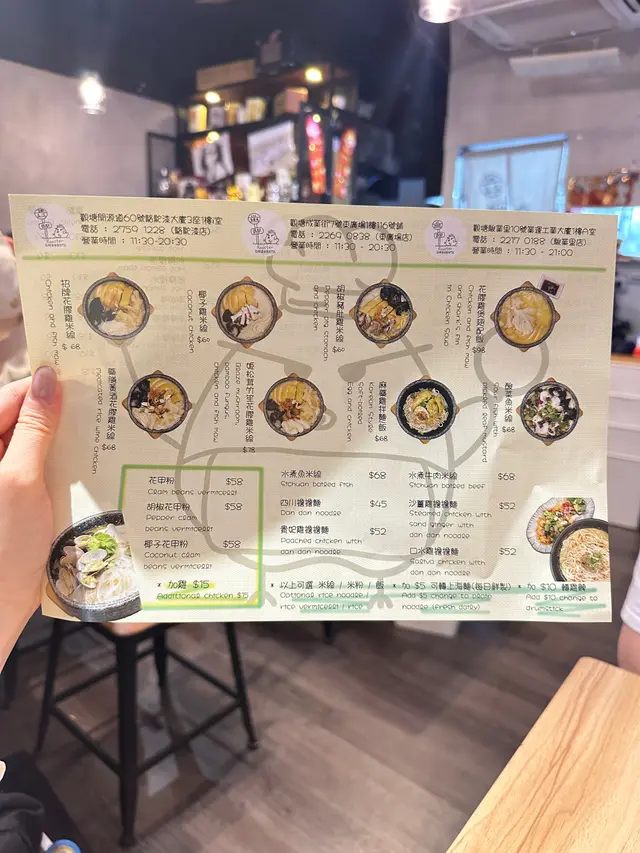 觀塘開源道60號駱駝漆大廈3座1樓I室
電話 : 2759 1228 (駱駝漆店)
營業時間 : 11:30-20:30
觀塘成業街7號東廣場1樓116號舖
電話 : 2269 0838 (東廣場店)
營業時間 : 11:30 - 20:30
觀塘駿業里10號業運工業大廈1樓A室
電話 : 2217 0188 (駿業里店)
營業時間 : 11:30 - 21:00
招牌花膠雞米線
Chicken and fish maw
$68
椰子雞米線
Coconut chicken
$60
胡椒豬肚雞米線
Peppercorn stomach
and chicken
$60
花膠雞煲翅配飯
Chicken and fish maw
and shark's fin
in Chicken Soup
$98
藥膳黃酒花膠雞米線
Medicated rice wine chicken
$68
姬松茸竹笙花膠雞米線
Blaze mushroom,
bamboo fungus,
chicken and fish maw
$78
麻藥雞蛋拌麵
Korean Style
Soft-boiled
Egg and chicken
$68
酸菜魚米線
Spin fish with
pickled Sour mustard
$68
花甲粉 $58
Clam beans vermicelli
胡椒花甲粉 $58
Pepper clam
beans vermicelli
椰子花甲粉 $58
Coconut clam
beans vermicelli
* 加雞 $15
Additional chicken $15
水煮魚米線 $68
Sichuan boiled fish
四川擔擔麵 $45
Dan dan noodle
貴妃雞擔擔麵 $52
Poached chicken with
dan dan noodle
水煮牛肉米線 $68
Sichuan boiled beef
沙薑雞擔擔麵 $52
Steamed chicken with
sand ginger with
dan dan noodle
口水雞擔擔麵 $52
Saliva chicken with
dan dan noodle
* 以上可選 米線 / 米粉 / 飯
Optional rice noodle /
rice vermicelli / rice
* 加 $5 可轉上海麵(每日鮮製)
Add $5 change to
noodle (Fresh daily)
* 加 $10 轉雞髀
Add $10 change to
drumstick